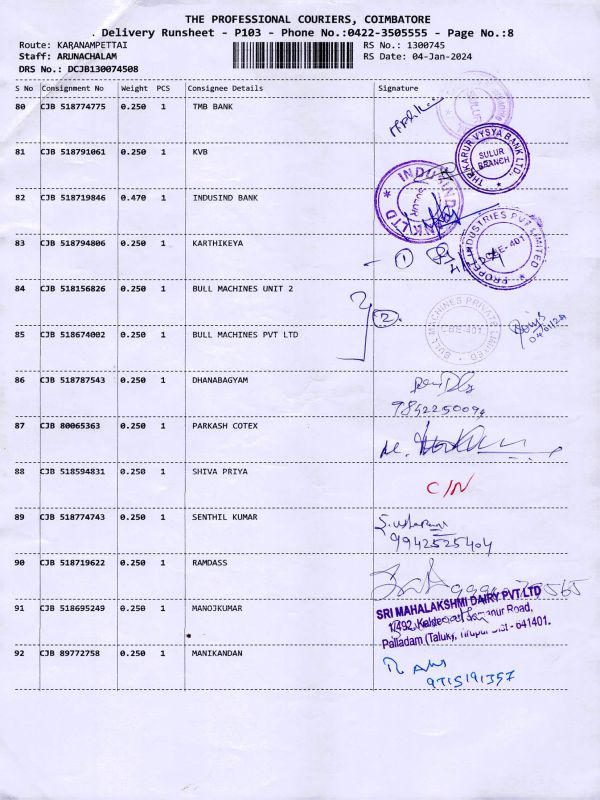 THE PROFESSIONAL COURIERS, COIMBATORE
. Delivery Runsheet - P103 - Phone No.:0422-3505555 - Page No.:8
Route: KARANAMPETTAI RS No.: 1300745
Staff: ARUNACHALAM RS Date: 04-Jan-2024
DRS No.: DCJB130074508
S No Consignment No Weight PCS Consignee Details Signature
80 CJB 518774775 0.250 1 TMB BANK
SULUR
81 CJB 518791061 0.250 1 KVB
THE KARUR VYSYA BANK LTD.
SULUR
BRANCH
82 CJB 518719846 0.470 1 INDUSIND BANK
INDUSIND BANK LTD
SULUR
83 CJB 518794806 0.250 1 KARTHIKEYA
1
INDUSTRIES PVT LIMITED
84 CJB 518156826 0.250 1 BULL MACHINES UNIT 2
2
85 CJB 518674002 0.250 1 BULL MACHINES PVT LTD
BULL MACHINES PRIVATE LIMITED
86 CJB 518787543 0.250 1 DHANABAGYAM
87 CJB 80065363 0.250 1 PARKASH COTEX
88 CJB 518594831 0.250 1 SHIVA PRIYA
C/N
89 CJB 518774743 0.250 1 SENTHIL KUMAR
9942525404
90 CJB 518719622 0.250 1 RAMDASS
91 CJB 518695249 0.250 1 MANOJKUMAR
SRI MAHALAKSHMI DAIRY PVT.LTD
Road,
Palladam (Taluk), Tirupur Dist - 641401.
92 CJB 89772758 0.250 1 MANIKANDAN
9715191357